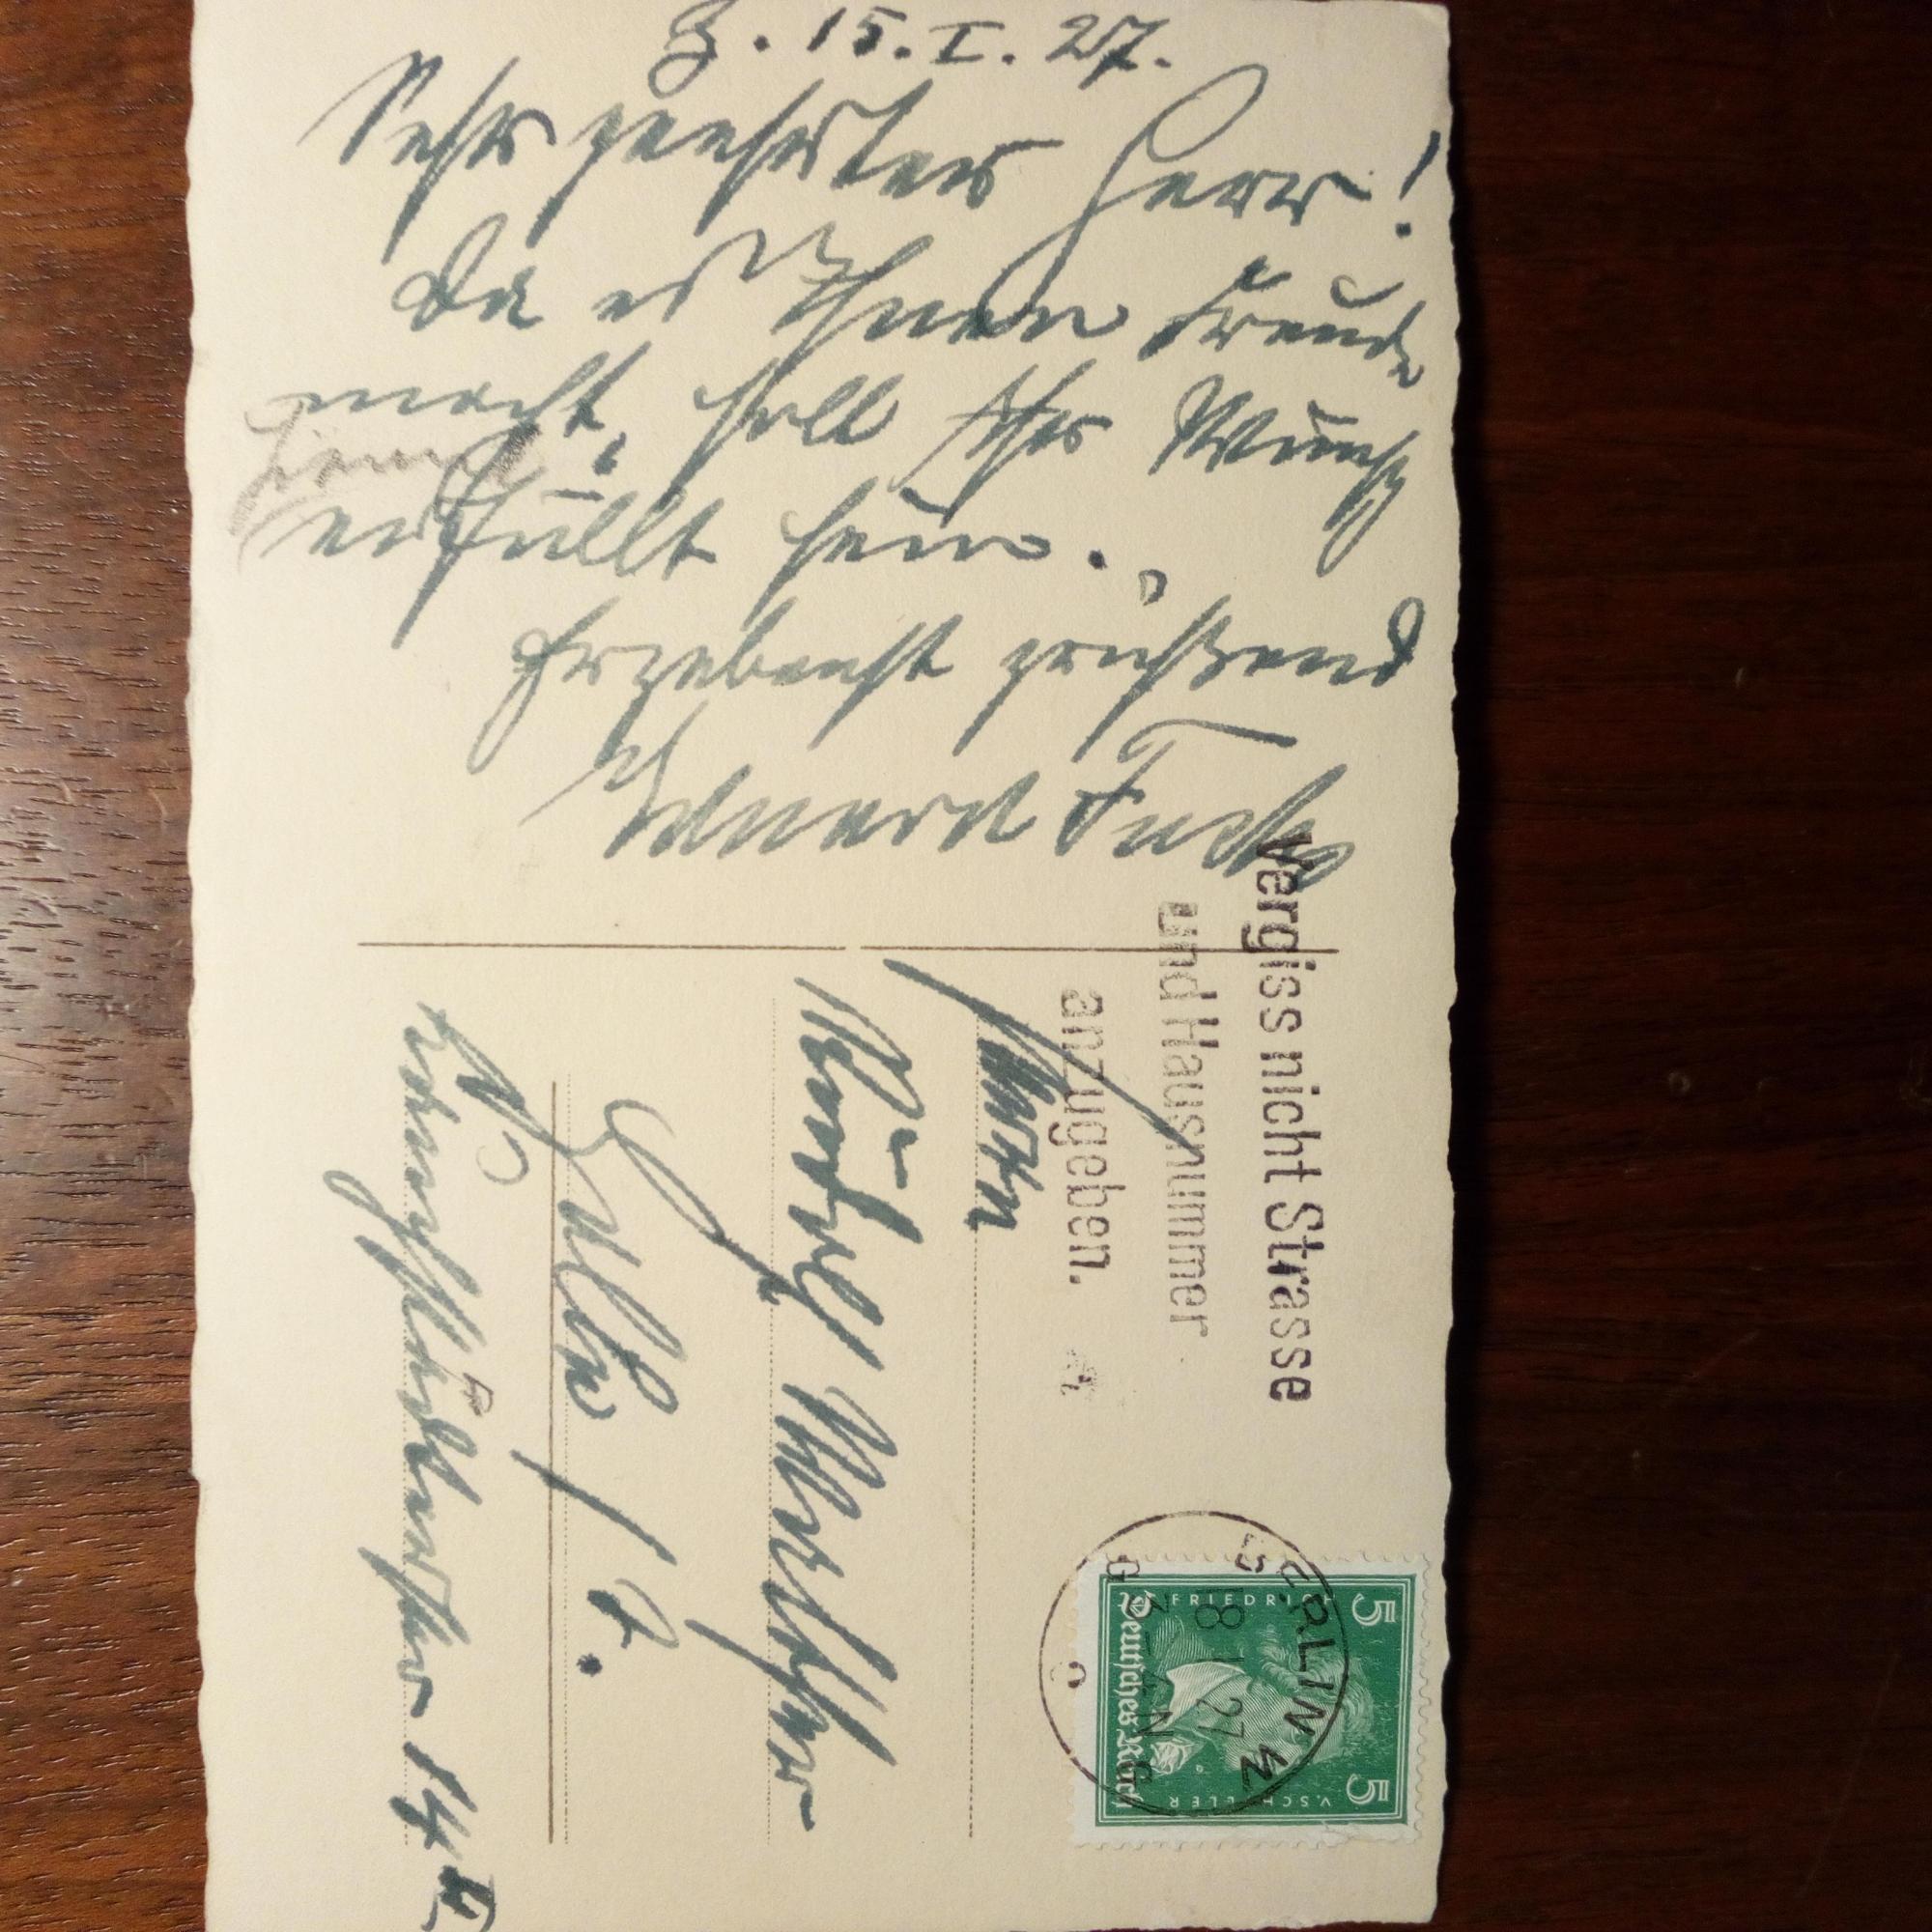 Z. 15. I. 27.
Sehr geehrter Herr!
Da es Ihnen Freude
macht, soll Ihr Wunsch
hiermit
erfüllt sein.
Ergebenst grüßend
Eduard Fuchs
Vergiss nicht Strasse
und Hausnummer
anzugeben.
Herrn
Rudolf
Halle / S.
14 II
BERLIN W
18 1 27
3-4 N
5 5
FRIEDRICH V. SCHILLER
Deutsches Reich